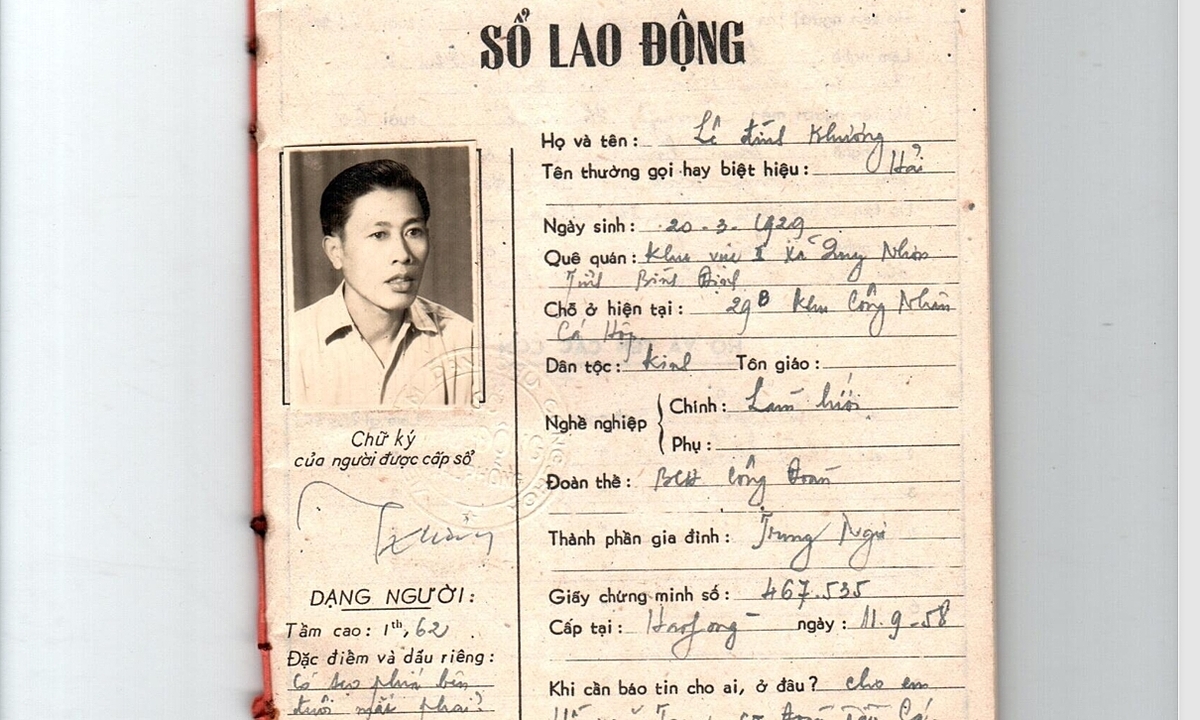 SỔ LAO ĐỘNG
Họ và tên: Lê đình Khương
Tên thường gọi hay biệt hiệu: Hải
Ngày sinh: 20-3-1929
Quê quán: Khu vực I Xã Nhơn
Tỉnh Bình Định
Chỗ ở hiện tại: 29B Khu Công Nhân
Cá Hộp
Dân tộc: Kinh Tôn giáo:
Nghề nghiệp
Chính: Làm lưới
Phụ:
Đoàn thể: BCH Công Đoàn
Thành phần gia đình: Trung Ngư
Giấy chứng minh số: 467.535
Cấp tại: Haifong ngày: 11.9-58
Khi cần báo tin cho ai, ở đâu? cho em
Chữ ký
của người được cấp sổ
DẠNG NGƯỜI:
Tầm cao: 1th,62
Đặc điểm và dấu riêng:
Có sẹo phía bên
đuôi mắt phải